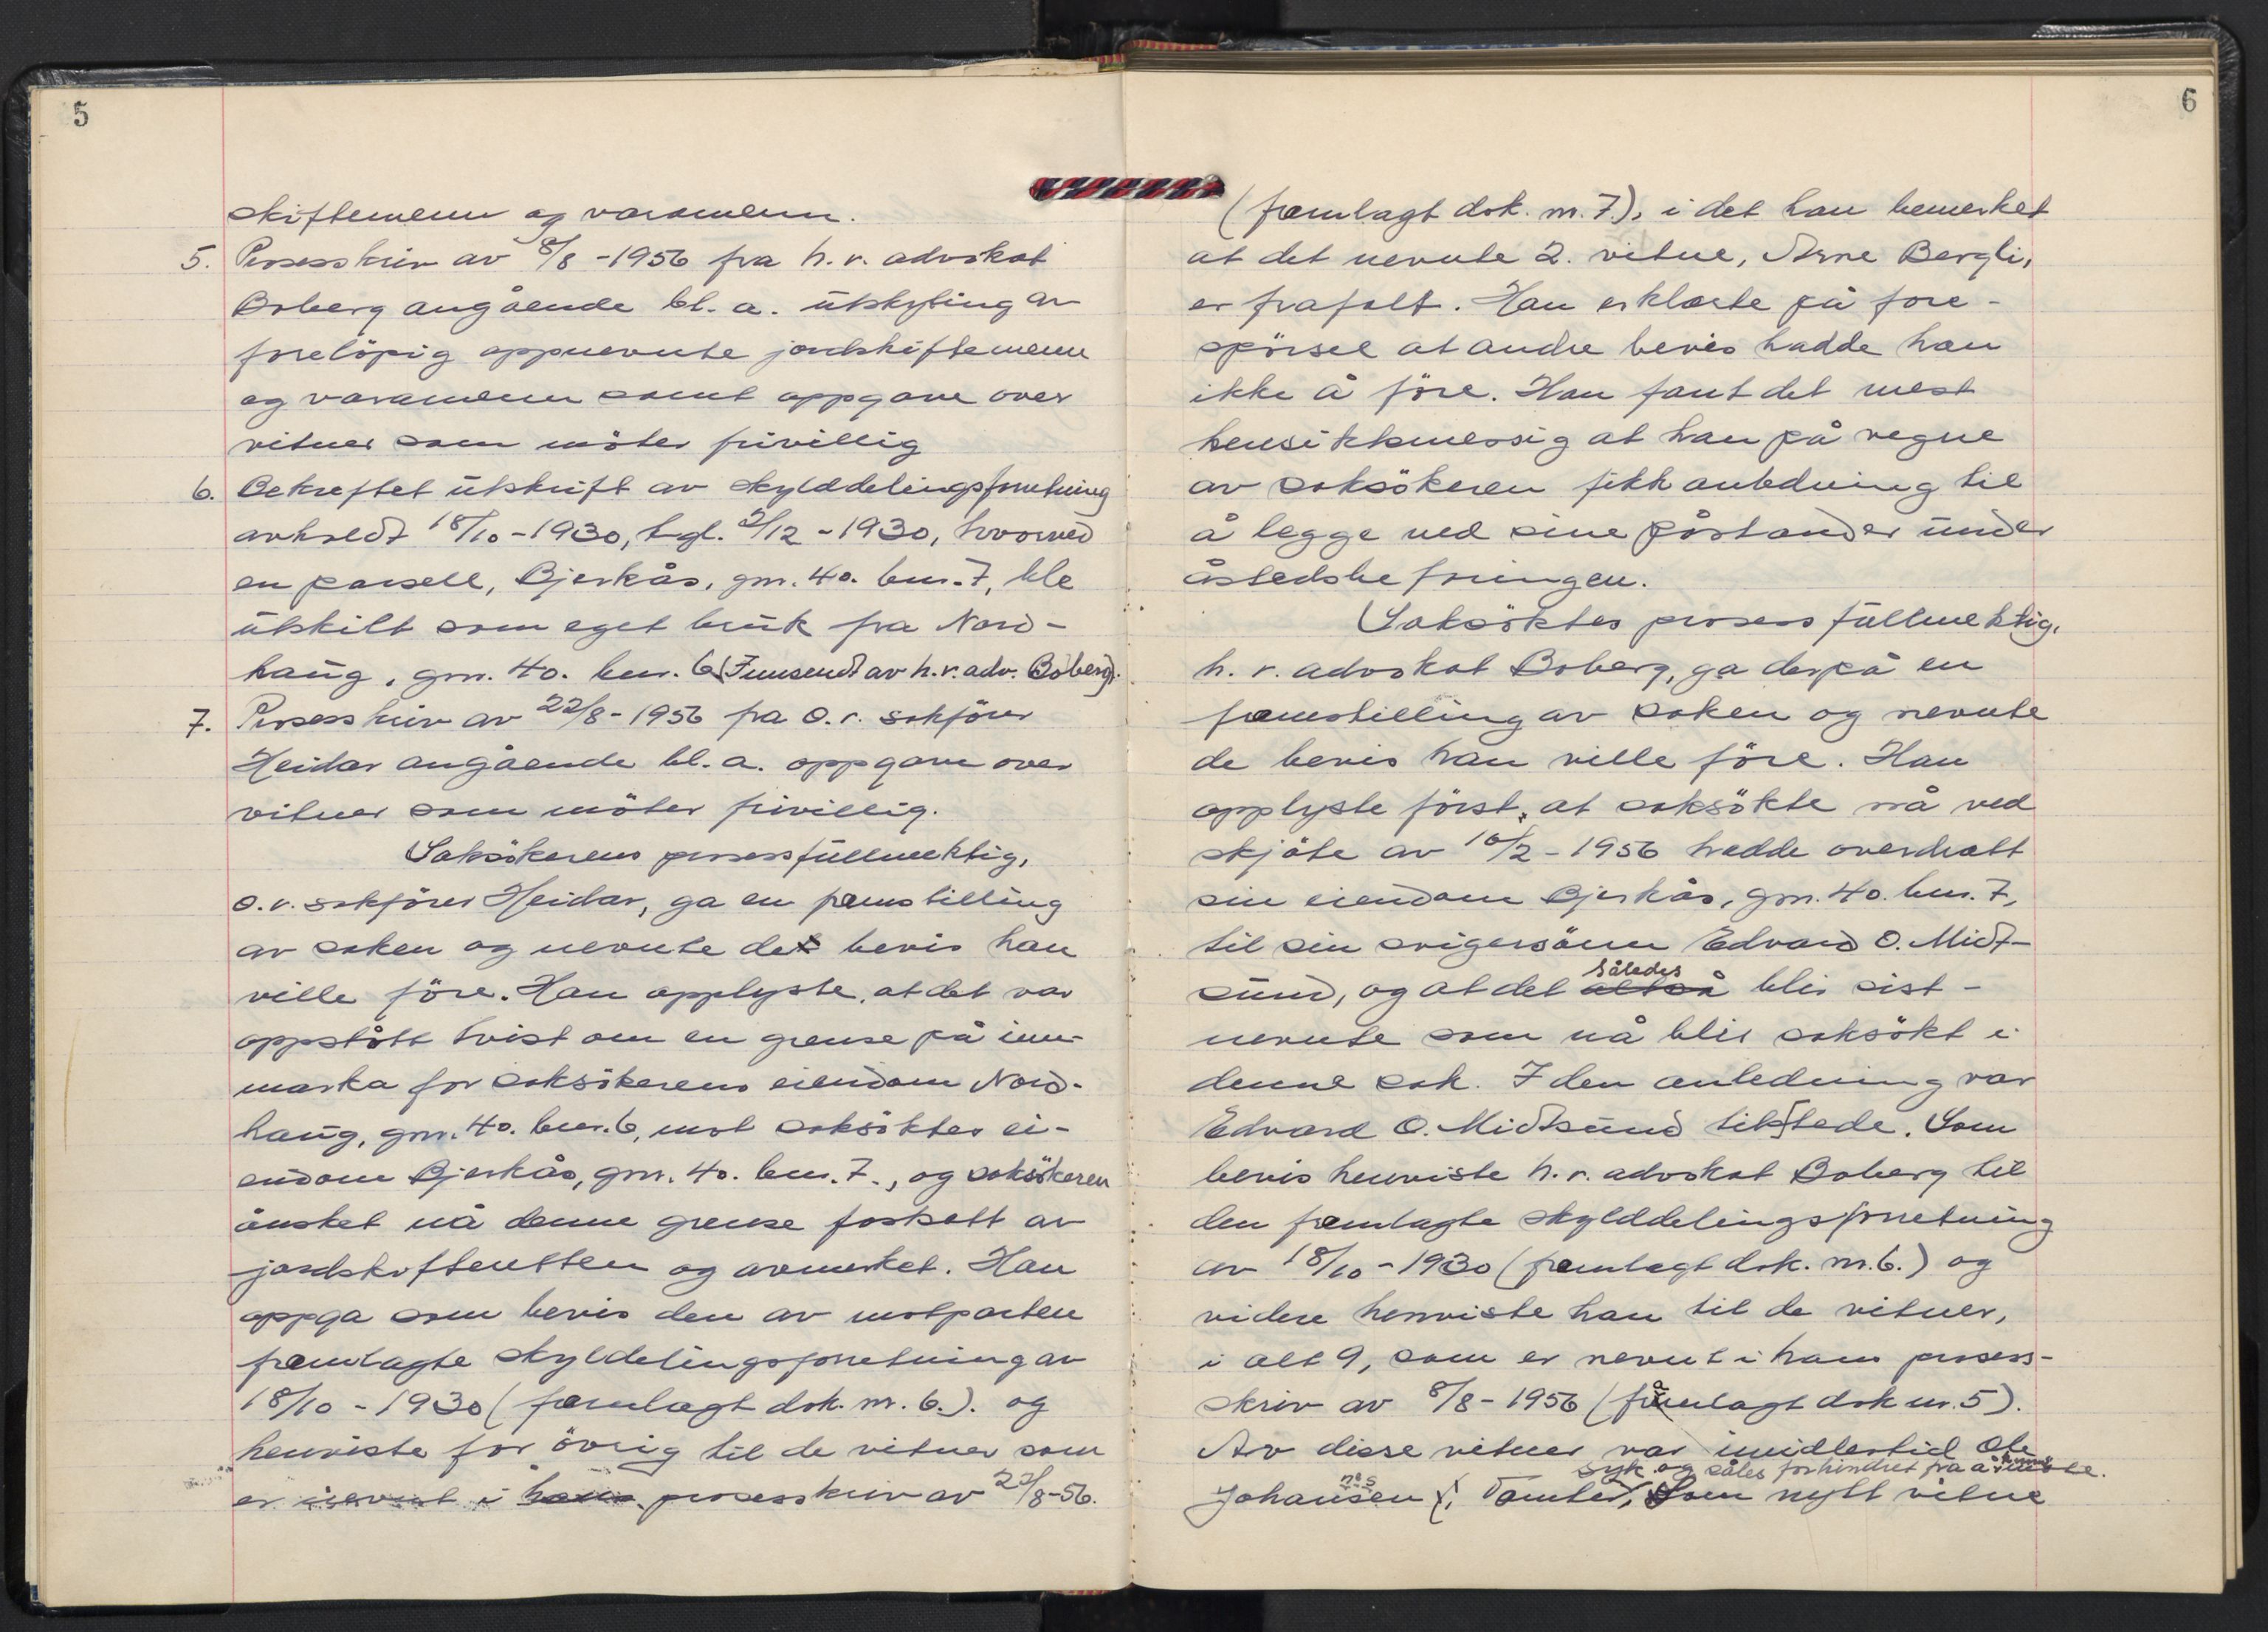 5
skiftemenn og varamenn.
5. Prosesskriv av 8/8-1956 fra h.r. advokat
Boberg angående bl.a. utskyting av
foreløpig oppnevnte jordskiftemenn
og varamenn samt oppgave over
vitner som möter frivillig
6. Bekreftet utskrift av skylddelingsforretning
avholdt 18/10-1930, tgl. 2/12-1930, hvorved
en parsell, Bjerkås, gnr. 40. bnr. 7, ble
utskilt som eget bruk fra Nord-
haug, gnr. 40. bnr. 6 (Innsendt av h.r. adv. Boberg).
7. Prosesskriv av 22/8-1956 fra o.r. sakförer
Heidar angående bl.a. oppgave over
vitner som möter frivillig.
Saksökerens prosessfullmektig,
o.r. sakförer Heidar, ga en fremstilling
av saken og nevnte de bevis han
ville före. Han opplyste, at det var
oppstått tvist om en grense på inn-
marka for saksökerens eiendom Nord-
haug, gnr. 40. bnr. 6, mot saksöktes ei-
endom Bjerkås, gnr. 40. bnr. 7., og saksökeren
önsket nå denne grense fastsatt av
jordskifteretten og avmerket. Han
oppga som bevis den av motparten
fremlagte skyldelingsforretning av
18/10-1930 (fremlagt dok. nr. 6.). og
henviste for övrig til de vitner som
er nevnt i hans prosesskriv av 22/8-56.
6
(fremlagt dok. nr. 7.), i det han bemerket
at det nevnte 2. vitne, Arne Bergli,
er frafalt. Han erklærte på fore-
spörsel at andre bevis hadde han
ikke å före. Han fant det mest
hensiktsmessig at han på vegne
av saksökeren fikk anledning til
å legge ned sine påstander under
åstedsbefaringen.
Saksöktes prosessfullmektig,
h.r. advokat Boberg, ga derpå en
fremstilling av saken og nevnte
de bevis han ville före. Han
opplyste först, at saksökte nå ved
skjöte av 10/2-1956 hadde overdratt
sin eiendom Bjerkås, gnr. 40. bnr. 7,
til sin svigersönn Edvard O. Midt-
således
sund, og at det altså blir sist-
nevnte som nå blir saksökt i
denne sak. I den anledning var
Edvard O. Midtsund tilstede. Som
bevis henviste h.r. advokat Boberg til
den fremlagte skylddelingsforretning
av 18/10-1930 (fremlagt dok. nr. 6.) og
videre henviste han til de vitner,
i alt 9, som er nevnt i hans prosess-
skriv av 8/8-1956 (framlagt dok nr. 5).
Av disse vitner var imidlertid Ole
syk og såles forhindret fra å möte.
Johansen, Tomter, Som nytt vitne